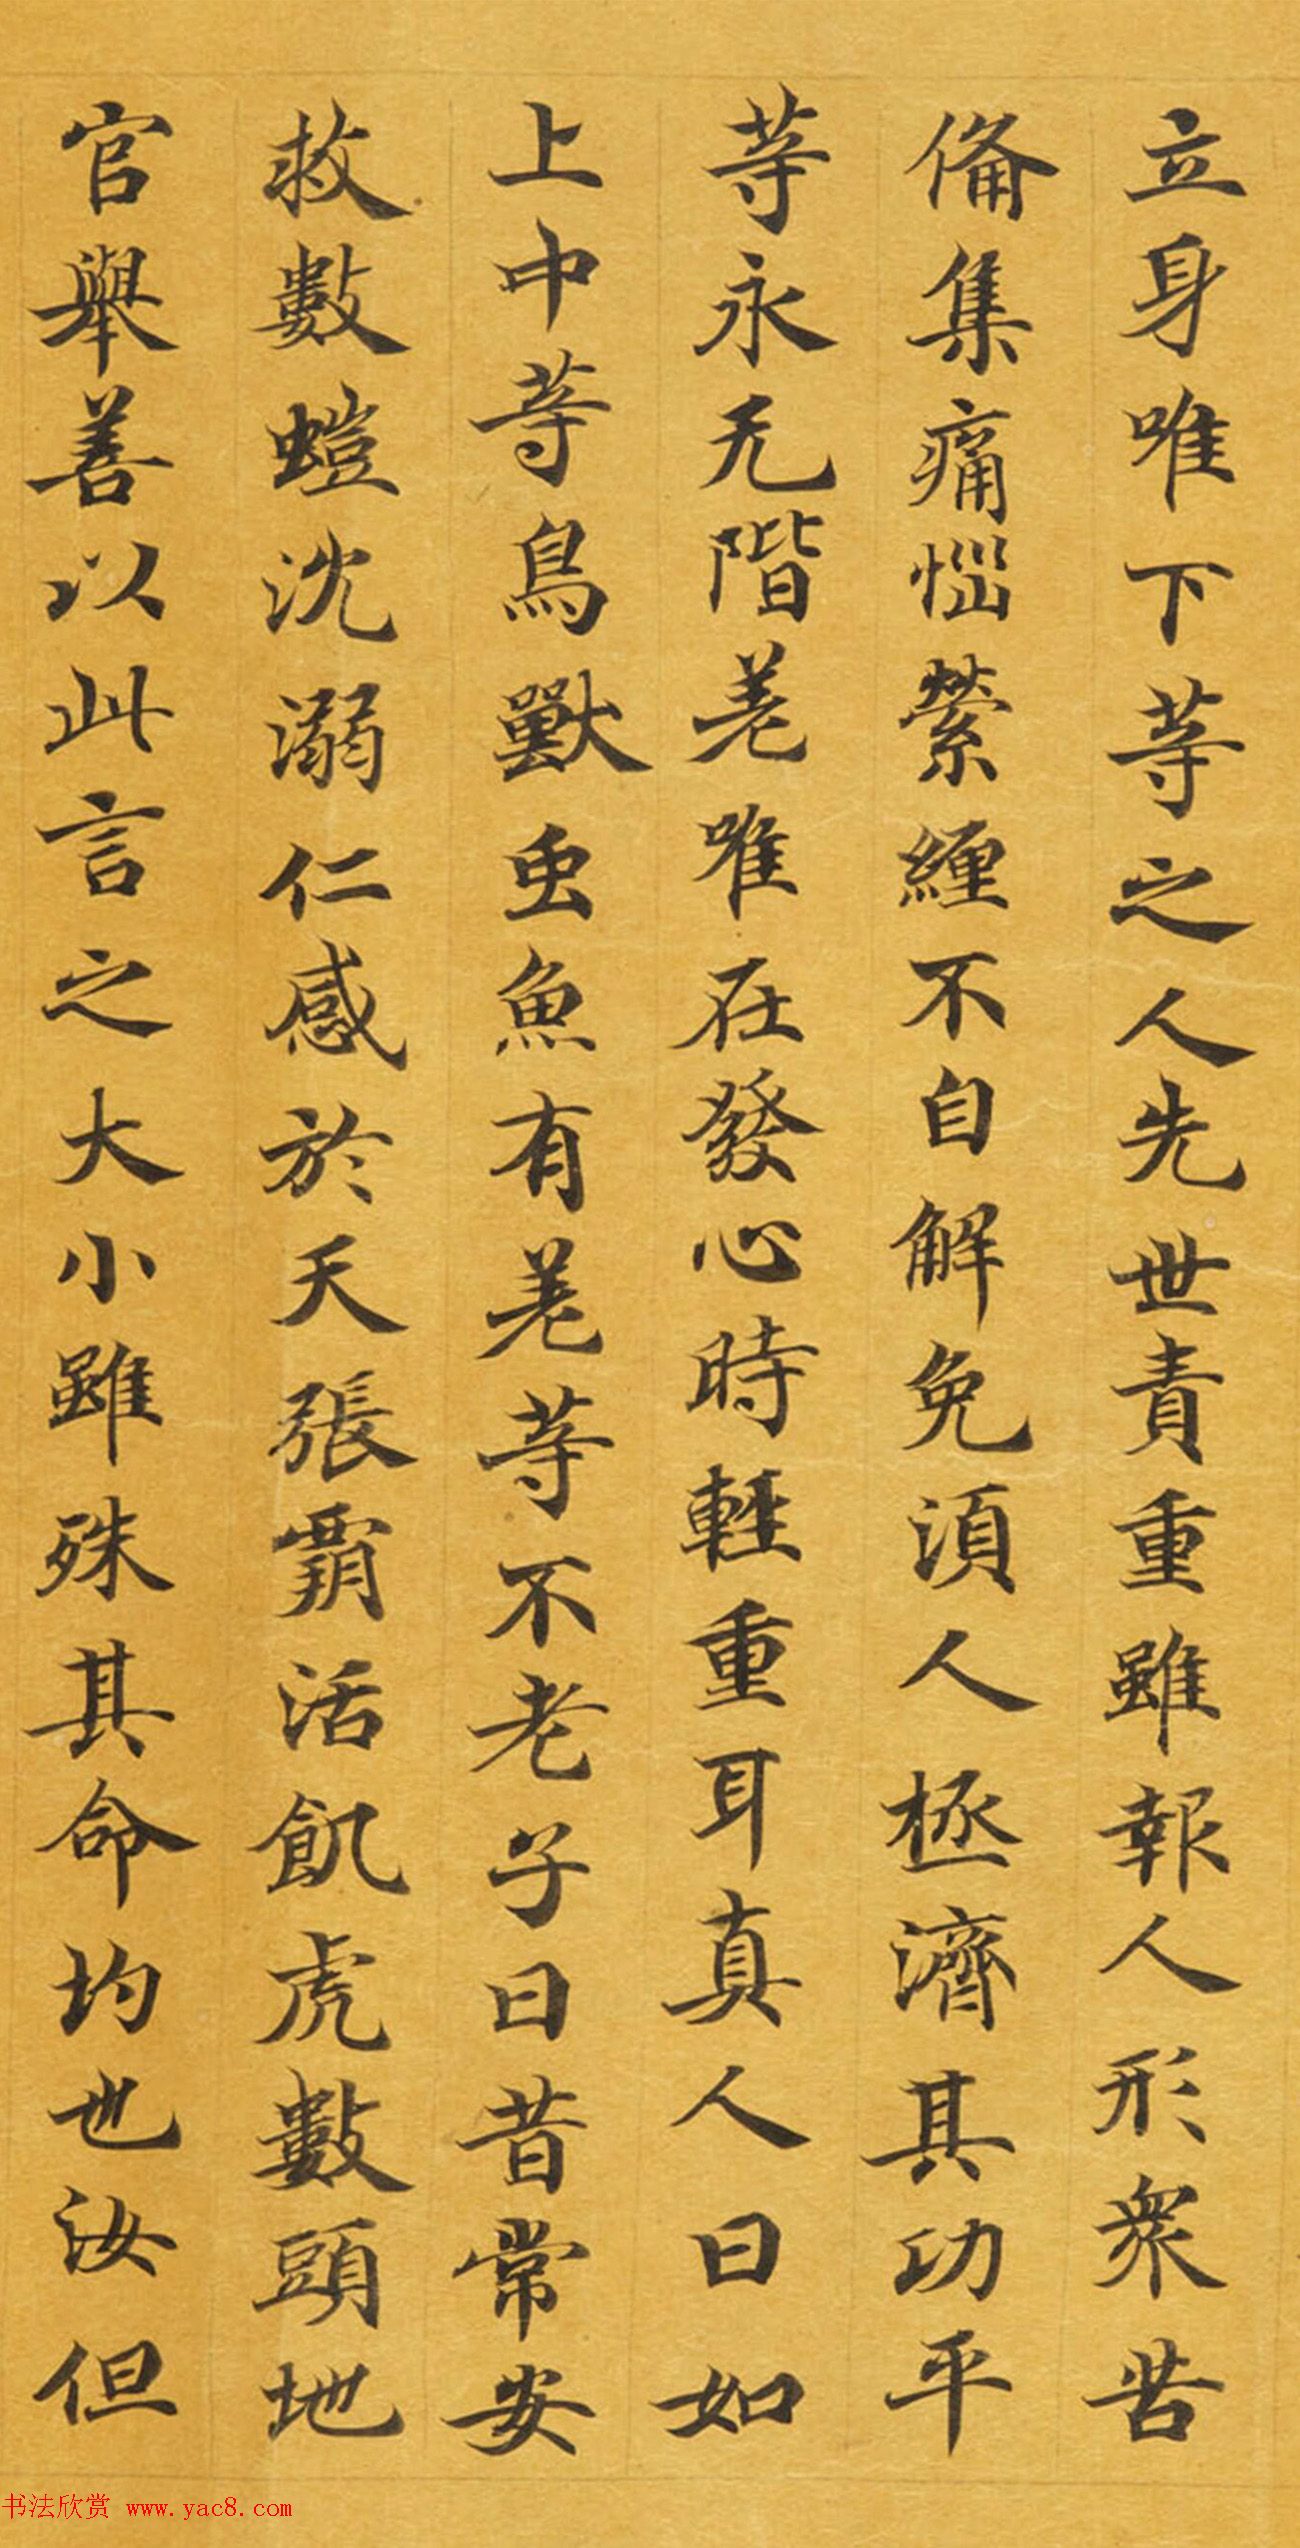 立身唯下等之人先世責重雖報人形衆苦
備集痛惱縈纏不自解免須人拯濟其功平
等永无階差唯在發心時輕重耳真人曰如
上中等鳥獸虫魚有差等不老子曰昔常安
救數螘沈溺仁感於天張霸活飢虎數頭地
官舉善以此言之大小雖殊其命均也汝但
书法欣赏 www.yac8.com